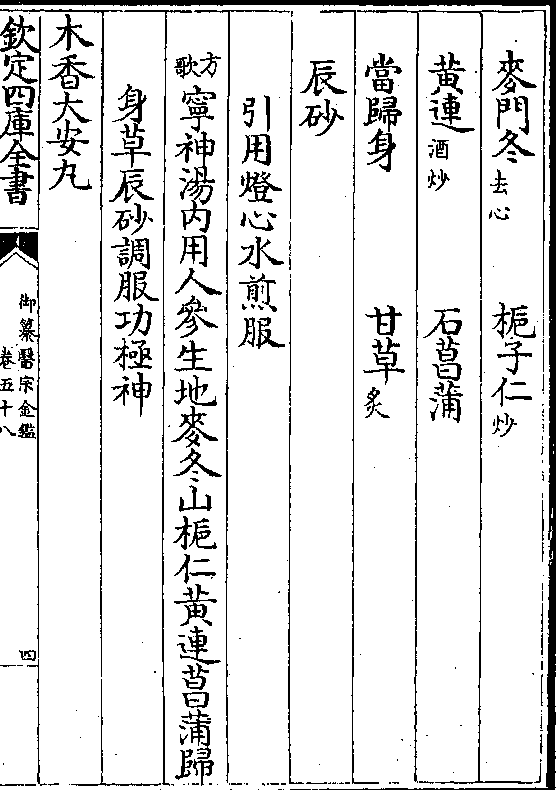 麥門冬去心 梔子仁炒
黃連酒炒 石菖蒲
當歸身 甘草炙
辰砂
引用燈心水煎服
方歌 寧神湯内用人參生地麥冬山梔仁黃連菖蒲歸
身草辰砂調服功極神
木香大安丸
欽定四庫全書 御纂醫宗金鑑 卷五十八 四